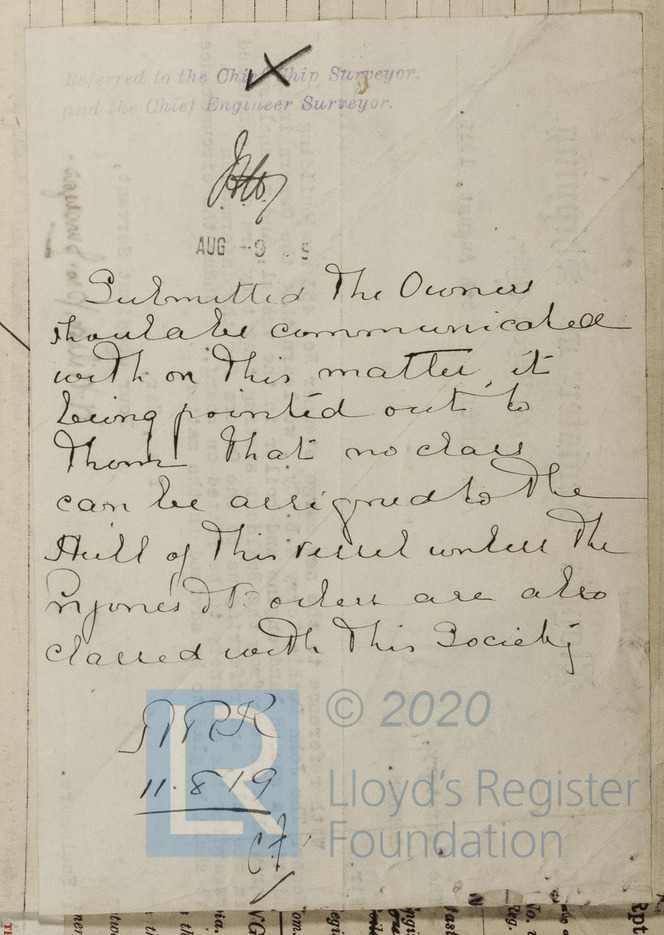 Referred to the Chief Ship Surveyor.
and the Chief Engineer Surveyor.
AUG -9 . 9
Submitted The Owners
should be communicated
with on this matter, it
being pointed out to
them that no class
can be assigned to the
Hull of this vessel unless the
Engines & Boilers are also
classed with this Society
11.8.19
LR
© 2020
Lloyd's Register
Foundation